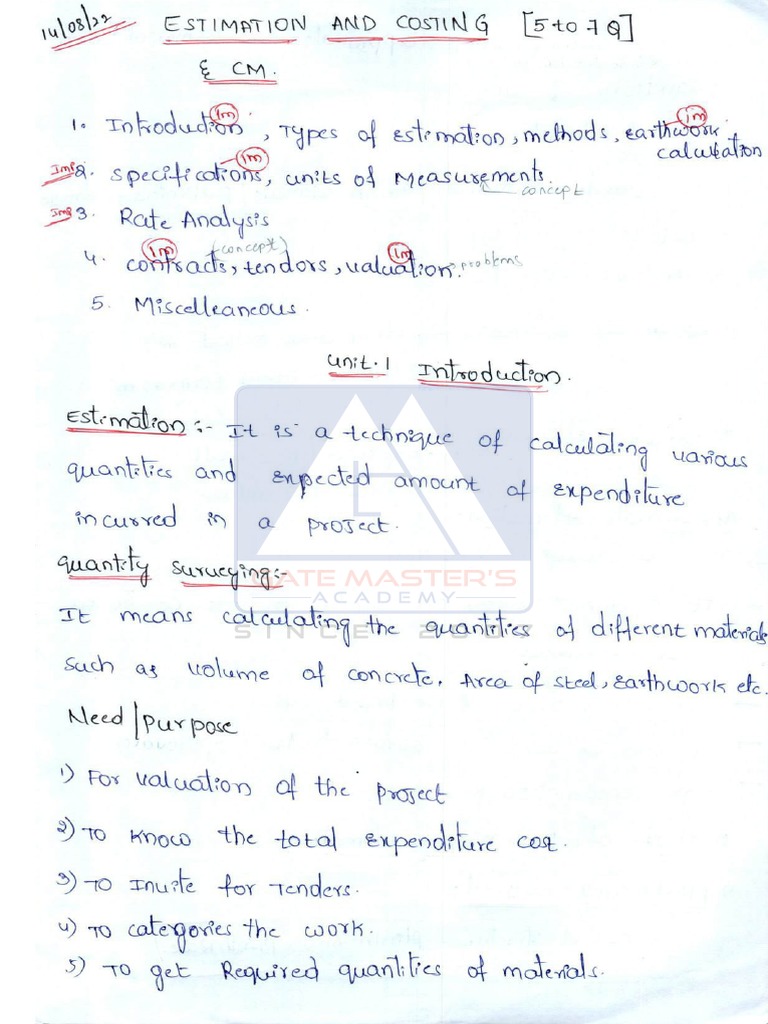 14/08/22 ESTIMATION AND COSTING [5 to 7 Q]
& CM.
1. Introduction (1m), Types of Estimation, methods, earthwork (1m)
calculation
Imp 2. Specifications (1m), units of Measurements. concept
Imp 3. Rate Analysis
4. contracts (1m), (concept) tendors, valuation (1m). problems
5. Miscelleaneous.
Unit.1 Introduction.
Estimation:- It is a technique of calculating various
quantities and expected amount of expenditure
incurred in a project.
quantity surveying:-
GATE MASTER'S
ACADEMY
It means calculating the quantities of different materials
SINCE 2007
such as volume of concrete, Area of steel, Earthwork etc.
Need/purpose
1) For valuation of the project
2) To know the total expenditure cost.
3) To Invite for Tenders.
4) To categories the work.
5) To get Required quantities of materials.